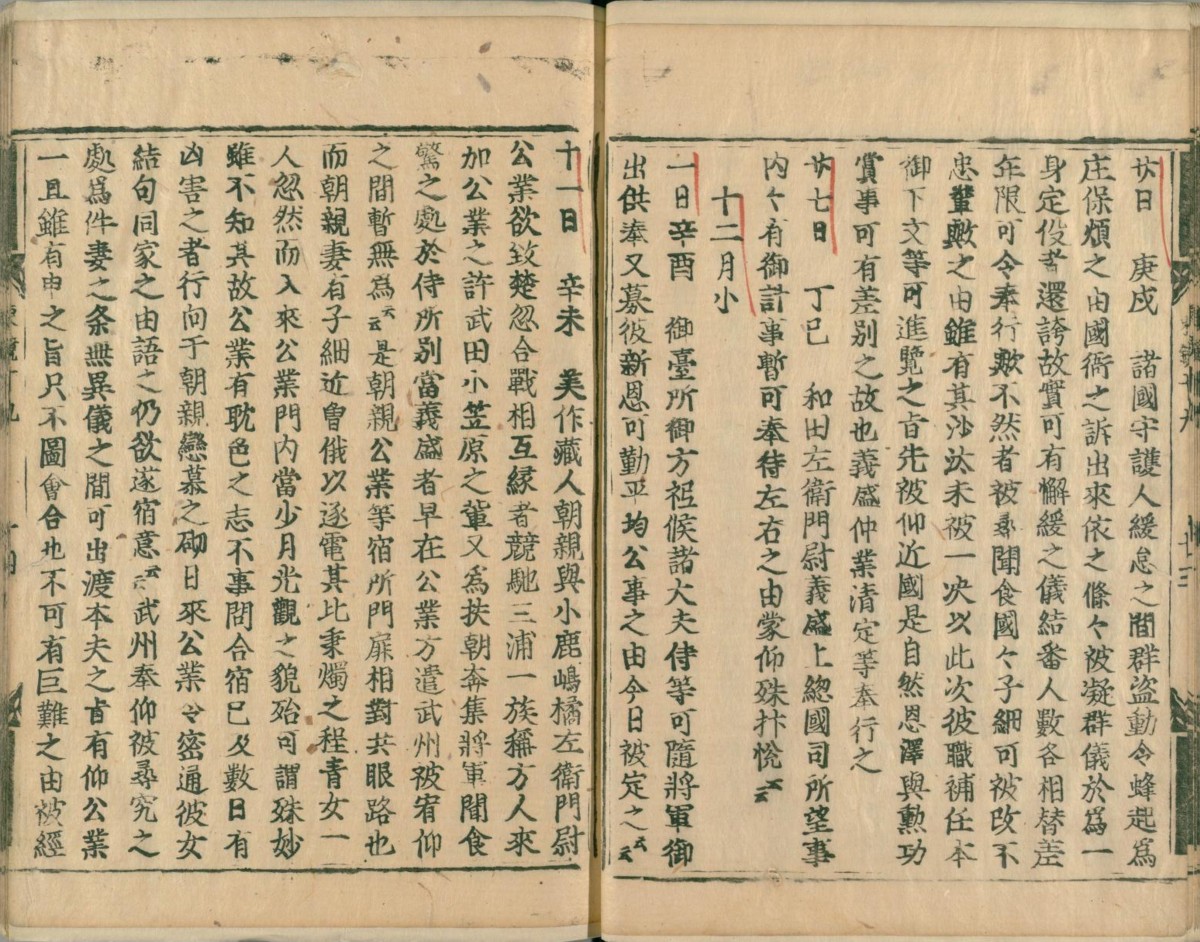 廿日　庚戌　諸國守護人緩怠之間群盗動令蜂起爲
庄保煩之由國衙之訴出來依之條々被凝群儀於爲一
身定役者還誇故實可有懈緩之儀結番人數各相替差
年限可令奉行歟不然者被尋聞食國々子細可被改不
忠輩歟之由雖有其沙汰未被一决以此次彼職補任本
御下文等可進覽之旨先被仰近國是自然恩澤與勲功
賞事可有差別之故也義盛仲業清定等奉行之
廿七日　丁巳　和田左衛門尉義盛上総國司所望事
内々有御計事暫可奉待左右之由蒙仰殊抃悦云云
十二月小
一日辛酉　御臺所御方祗候諸大夫侍等可隨將軍御
出供奉又募彼新恩可勤平均公事之由今日被定之云云
十一日　辛未　美作藏人朝親與小鹿嶋橘左衛門尉
公業欲致楚忽合戰相互縁者競馳三浦一族稱方人來
加公業之許武田小笠原之輩又爲扶朝奔集將軍聞食
驚之處於侍所別當義盛者早在公業方遣武州被宥仰
之間暫無爲云云是朝親公業等宿所門扉相對共眼路也
而朝親妻有子細近曾俄以逐電其比秉燭之程青女一
人忽然而入來公業門内當少月光觀之貌殆可謂殊妙
雖不知其故公業有耽色之志不事問合宿已及數日有
凶害之者行向于朝親戀慕之砌日來公業令密通彼女
結句同家之由語之仍欲遂宿意云云武州奉仰被尋究之
處爲件妻之条無異儀之間可出渡本夫之旨有仰公業
一旦雖有申之旨只不圖會合也不可有巨難之由被經